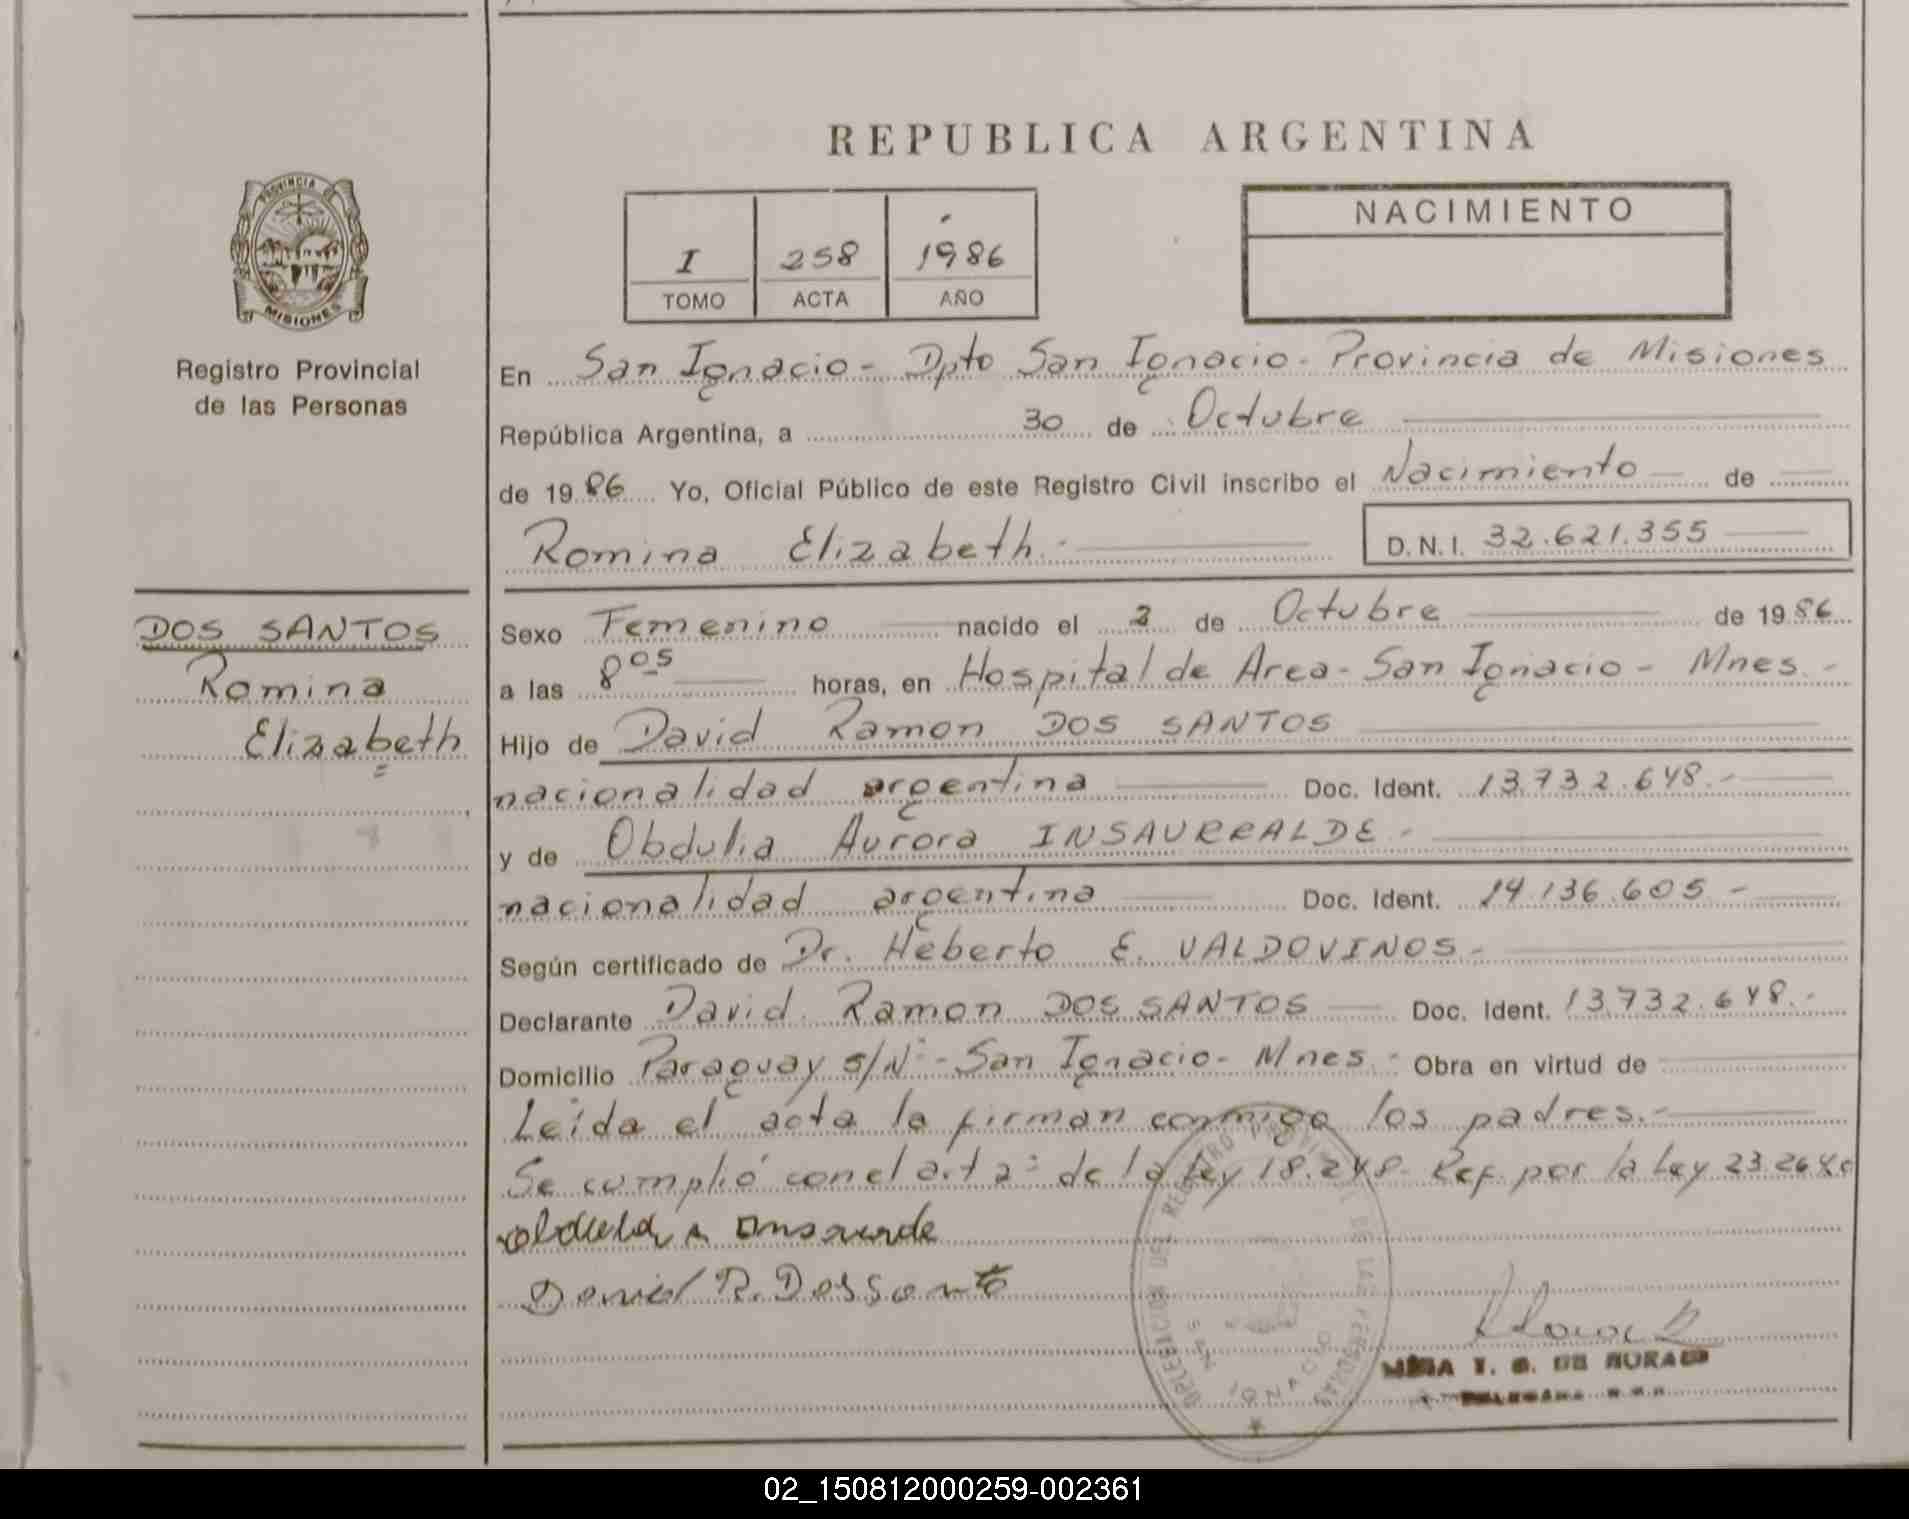 REPUBLICA ARGENTINA
PROVINCIA DE
MISIONES
Registro Provincial
de las Personas
I 258 1986
TOMO ACTA AÑO
NACIMIENTO
En San Ignacio - Dpto San Ignacio - Provincia de Misiones
República Argentina, a 30 de Octubre
de 1986 Yo, Oficial Público de este Registro Civil inscribo el Nacimiento de
Romina Elizabeth.- D.N.I. 32.621.355
DOS SANTOS
Romina
Elizabeth
Sexo Femenino nacido el 2 de Octubre de 1986
a las 8 05 horas, en Hospital de Area - San Ignacio - Mnes.-
Hijo de David Ramon DOS SANTOS
nacionalidad argentina Doc. Ident. 13.732.648.-
y de Obdulia Aurora INSAURRALDE -
nacionalidad argentina Doc. Ident. 14.136.605 -
Según certificado de Dr. Heberto E. VALDOVINOS.-
Declarante David Ramon DOS SANTOS Doc. Ident. 13.732.648.-
Domicilio Paraguay s/N°- San Ignacio - Mnes.- Obra en virtud de
Leida el acta la firman conmigo los padres.-
Se cumplió con el art 2° de la Ley 18.248- Ref. por la Ley 23.264
R. Dos Santo
DELEGACION DEL REGISTRO PROVINCIAL DE LAS PERSONAS
SAN IGNACIO
02_150812000259-002361